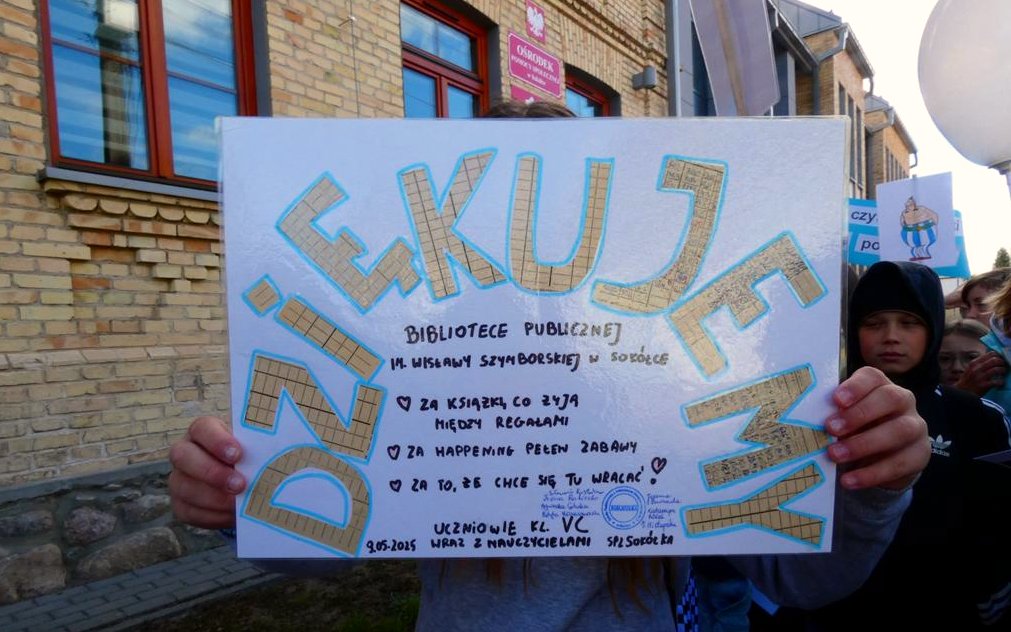 OŚRODEK
POMOCY SPOŁECZNEJ
w Sokółce
DZIĘKUJEMY
BIBLIOTECE PUBLICZNEJ
IM. WISŁAWY SZYMBORSKIEJ W SOKÓŁCE
♡ ZA KSIĄŻKI, CO ŻYJĄ
MIĘDZY REGAŁAMI
♡ ZA HAPPENING PEŁEN ZABAWY
♡ ZA TO, ŻE CHCE SIĘ TU WRACAĆ!♡
UCZNIOWIE KL. VC
9.05.2025 WRAZ Z NAUCZYCIELAMI SP2 SOKÓŁKA
czy
po
adidas